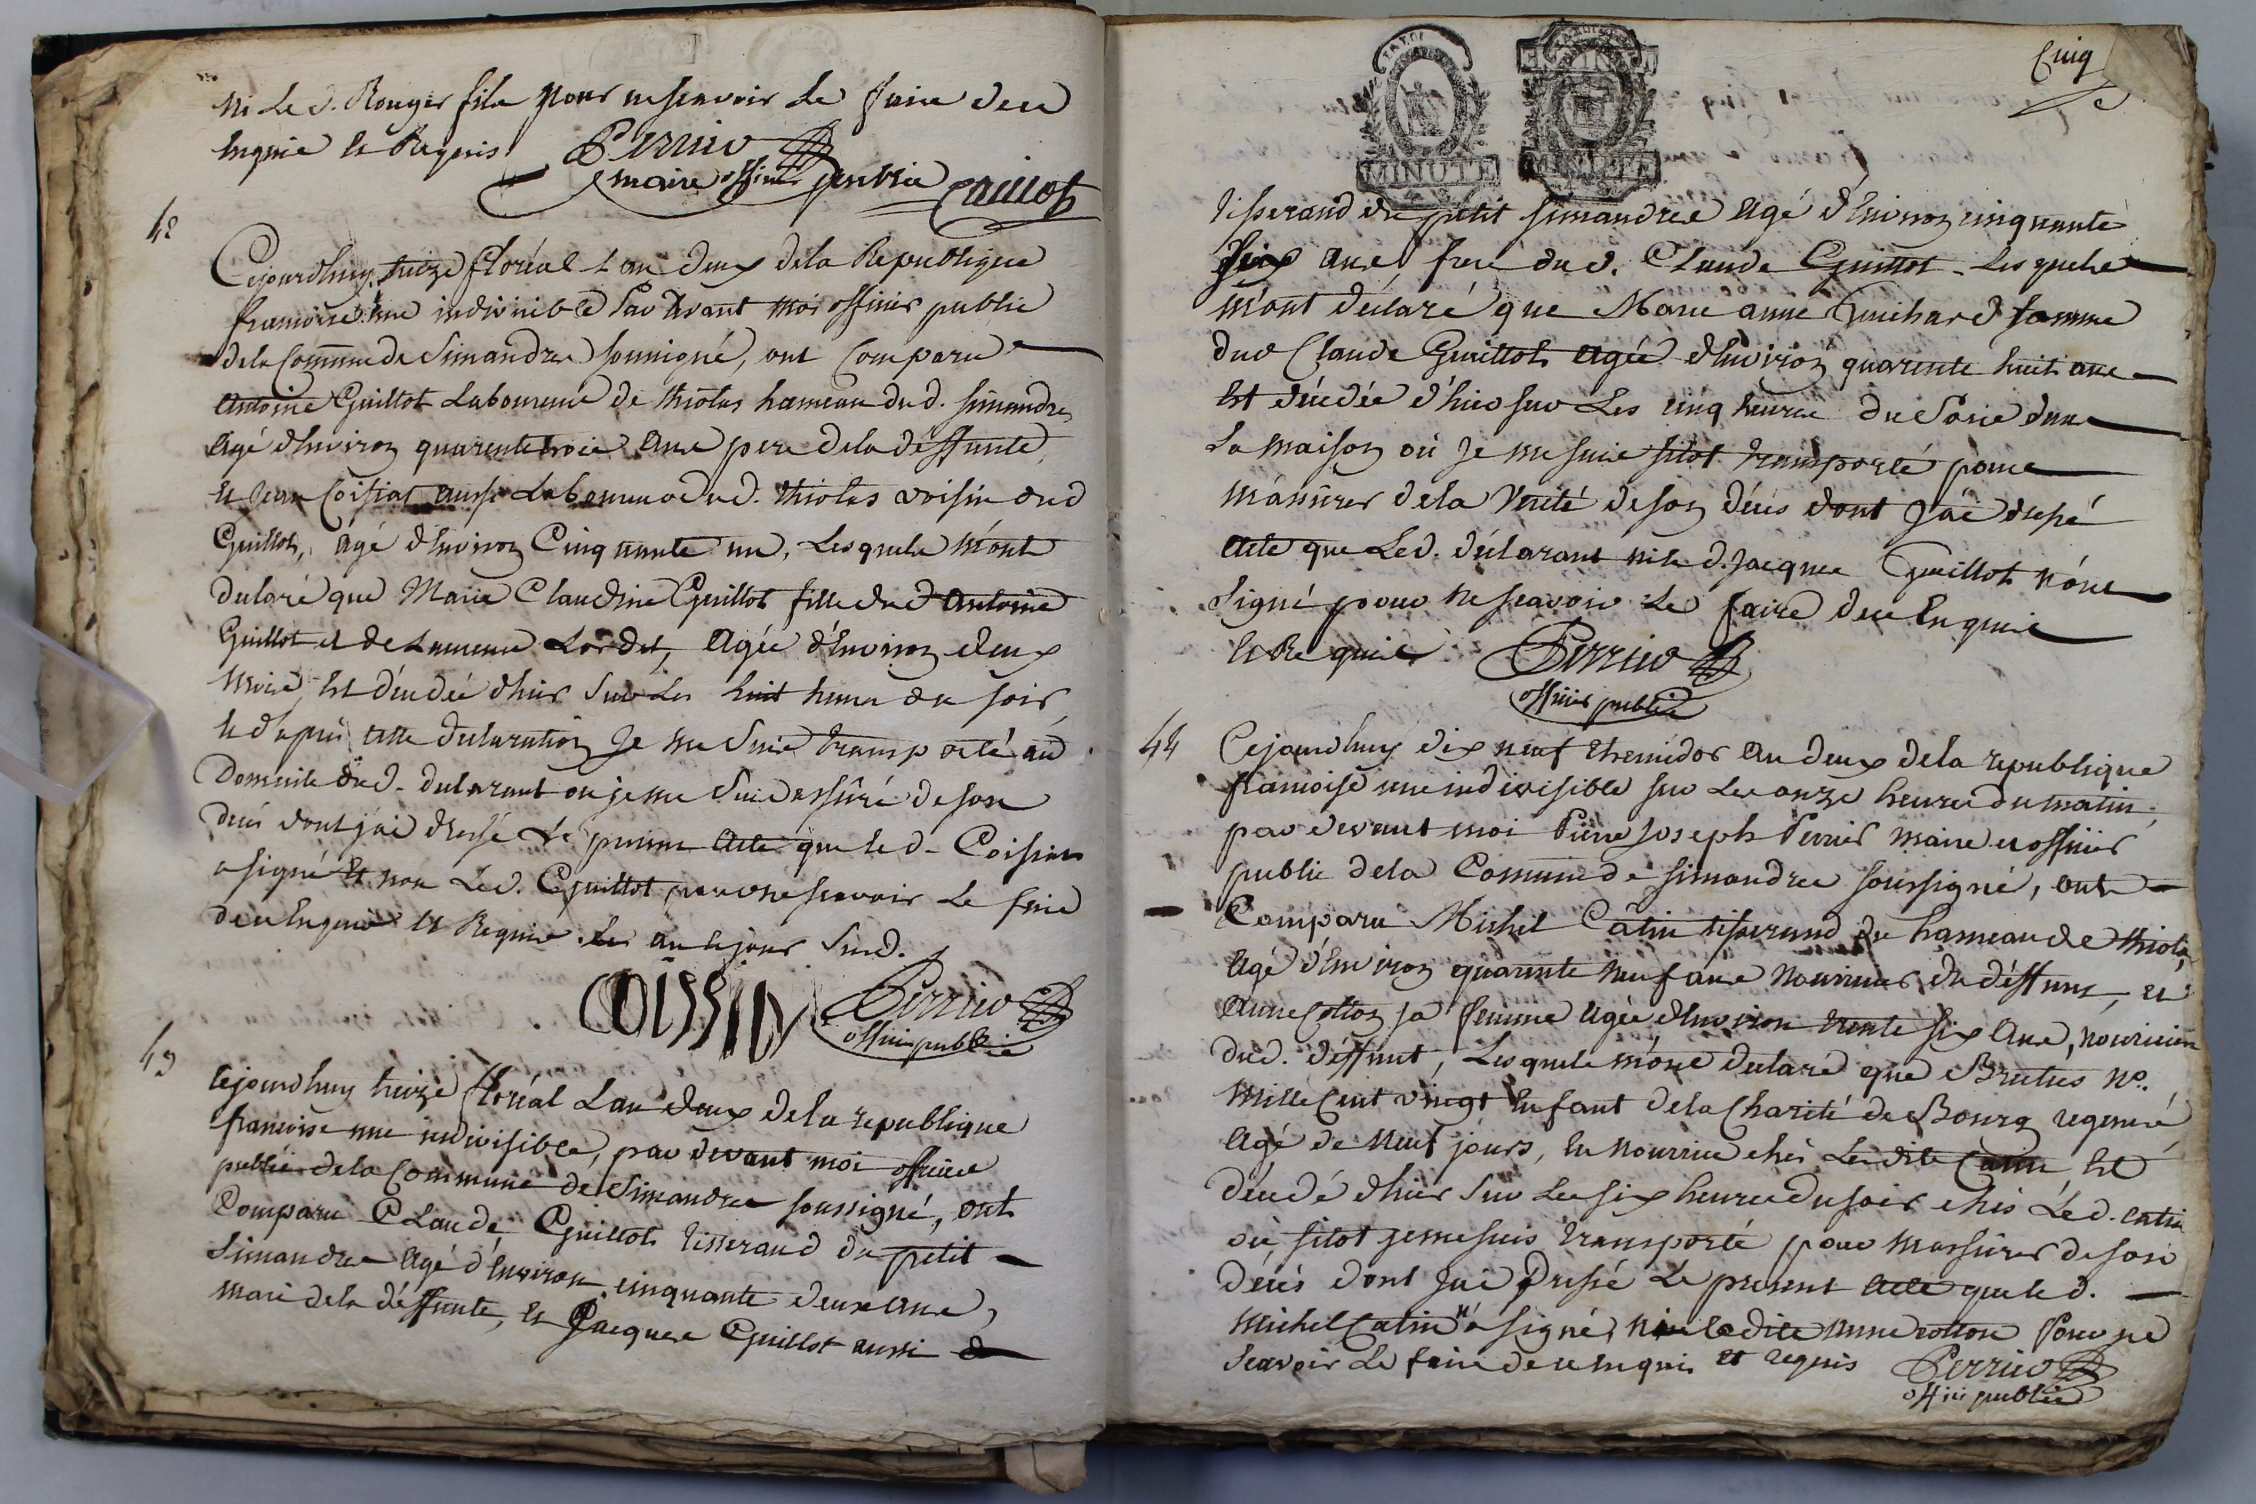 ni le d. Rouger fils pour ne scavoir le faire de ce
enquis et Requis Perrier
maire officier public Caillot
42
Cejourdhuy treize floréal l'an deux de la Republique
francoise une indivisible Par devant moi officier public
de la Commune de Simandre soussigné, ont comparu
antoine Guillot Laboureur de thiolas hameau dud. simandre
agé d'environ quarente trois ans pere de la deffunte
et Jean Coissiat aussi Laboureur dud. thiolas voisin dud
Guillot, agé d'environ Cinquante un, Lesquels m'ont
declaré que Marie Claudine Guillot fille dud antoine
Guillot et de Laurence Lordet, agée d'environ deux
mois, est décédée d'hier sur les huit heures du soir
et d'après cette declaration je me suis transporté au
Domicile dud. declarant ou je me suis assuré de son
décès dont j'ai dressé le présent acte que led. Coissiat
a signé et non led. Guillot pour ne scavoir le faire
de ce enquis et Requis. Les an et jour Susd.
Perrier
officier public
43
Cejourdhuy treize floréal l'an deux de la republique
francoise une indivisible, par devant moi officier
public de la Commune de Simandre soussigné, ont
Comparu Claude Guillot tisserand du petit
Simandre agé d'environ cinquante deux ans,
mari de la déffunte, et Jacques Guillot aussi
Cinq
MINUTE MINUTE
tisserand du petit simandre agé d'environ cinquante
six ans frere dud. Claude Guillot. Lesquels
m'ont déclaré que Marie anne Guichard femme
dud Claude Guillot agée d'environ quarente huit ans
est décédée d'hier sur les cinq heures du Soir dans
la maison où je me suis sitot transporté pour
m'assurer de la verité de son décès dont j'ai dressé
acte que led. déclarant ni led. Jacques Guillot n'ont
signé pour ne scavoir le faire de ce Enquis
et Requis Perrier
officier public
44
Cejourdhuy dix neuf thermidor an deux de la republique
francoise une indivisible sur les onze heures du matin,
par devant moi Pierre Joseph Perrier maire et officier
public de la Commune de simandre soussigné, ont
Comparu Michel Catin tisserand du hameau de thiolas
agé d'environ quarente neuf ans nourricier du déffunt, et
anne Cotton sa femme agée d'environ trente six ans, nouriciere
dud. déffunt, Lesquels m'ont declaré que Brutus No.
mille cent vingt enfant de la Charité de Bourg regeneré
agé de neuf jours, en nourrice chés Lesdits Catin, est
décédé d'hier sur les six heures du soir chés led. catin
où sitot je me suis transporté pour m'assurer de son
décès dont j'ai dressé le present acte que led.
Michel Catin n'a signé, ni ladite anne cotton pour ne
scavoir le faire de ce enquis et requis Perrier
officier public